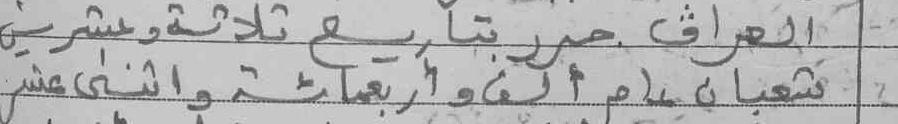 العراق حرر بتاريخ ثلاثة وعشرين
شعبان عام ألف وأربعمائة واثنى عشر